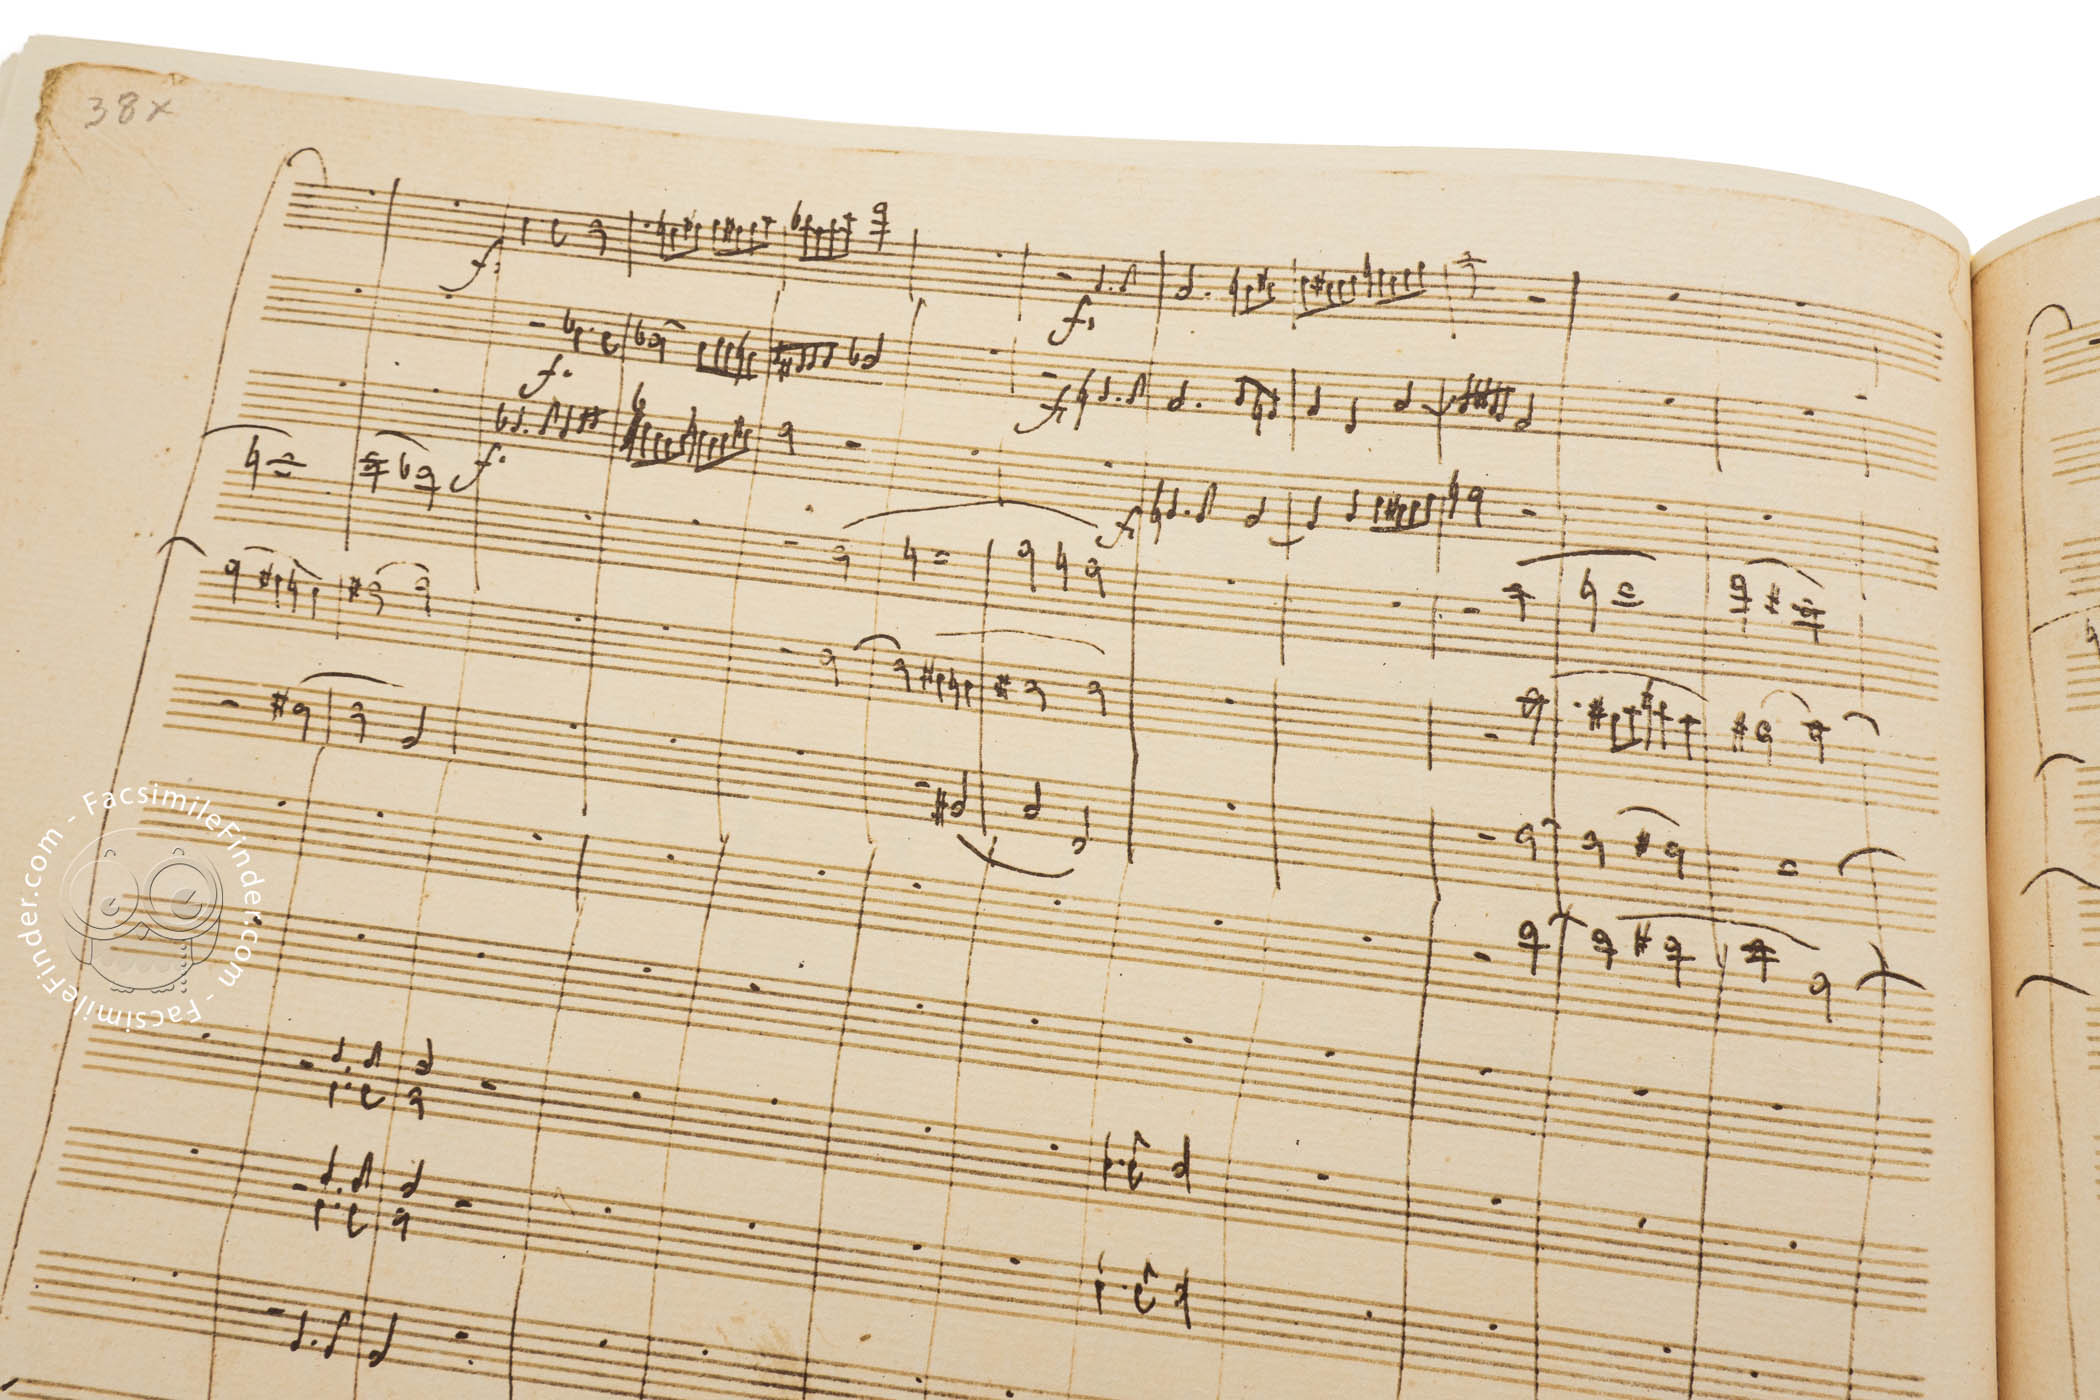 38x
f:
f.
f.
f:
f:
f
FacsimileFinder.com - FacsimileFinder.com -